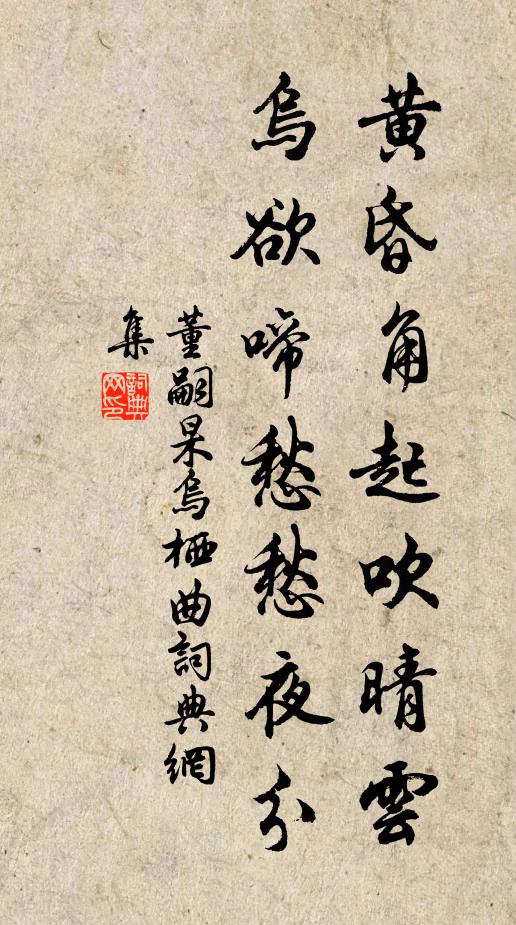 黃昏角起吹晴雲
烏欲啼愁愁夜分
董嗣杲烏栖曲詞典網
集
詞典網印